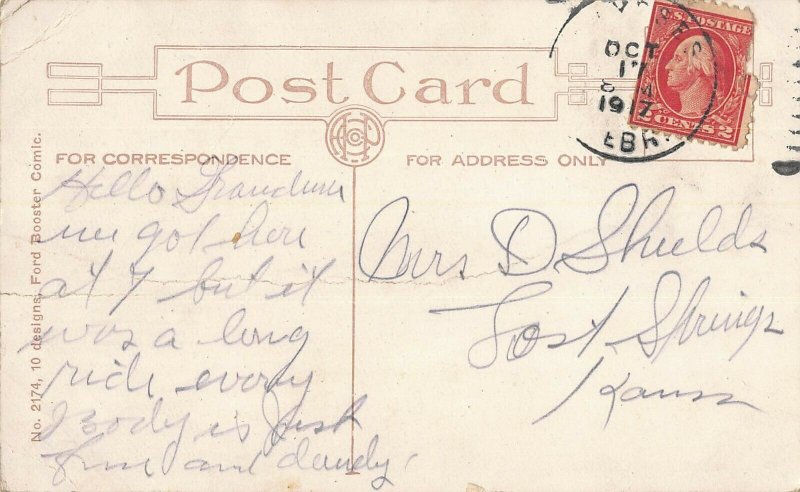 Post Card
FOR CORRESPONDENCE
FOR ADDRESS ONLY
No. 2174, 10 designs, Ford Booster Comic.
U.S. POSTAGE
2 CENTS 2
OCT
17
1917
EBR
Hello Grandma
we got here
at 7 but it
was a long
ride every
Body is Just
fine and dandy.
Mrs D Shields
Lost Springs
Kansas